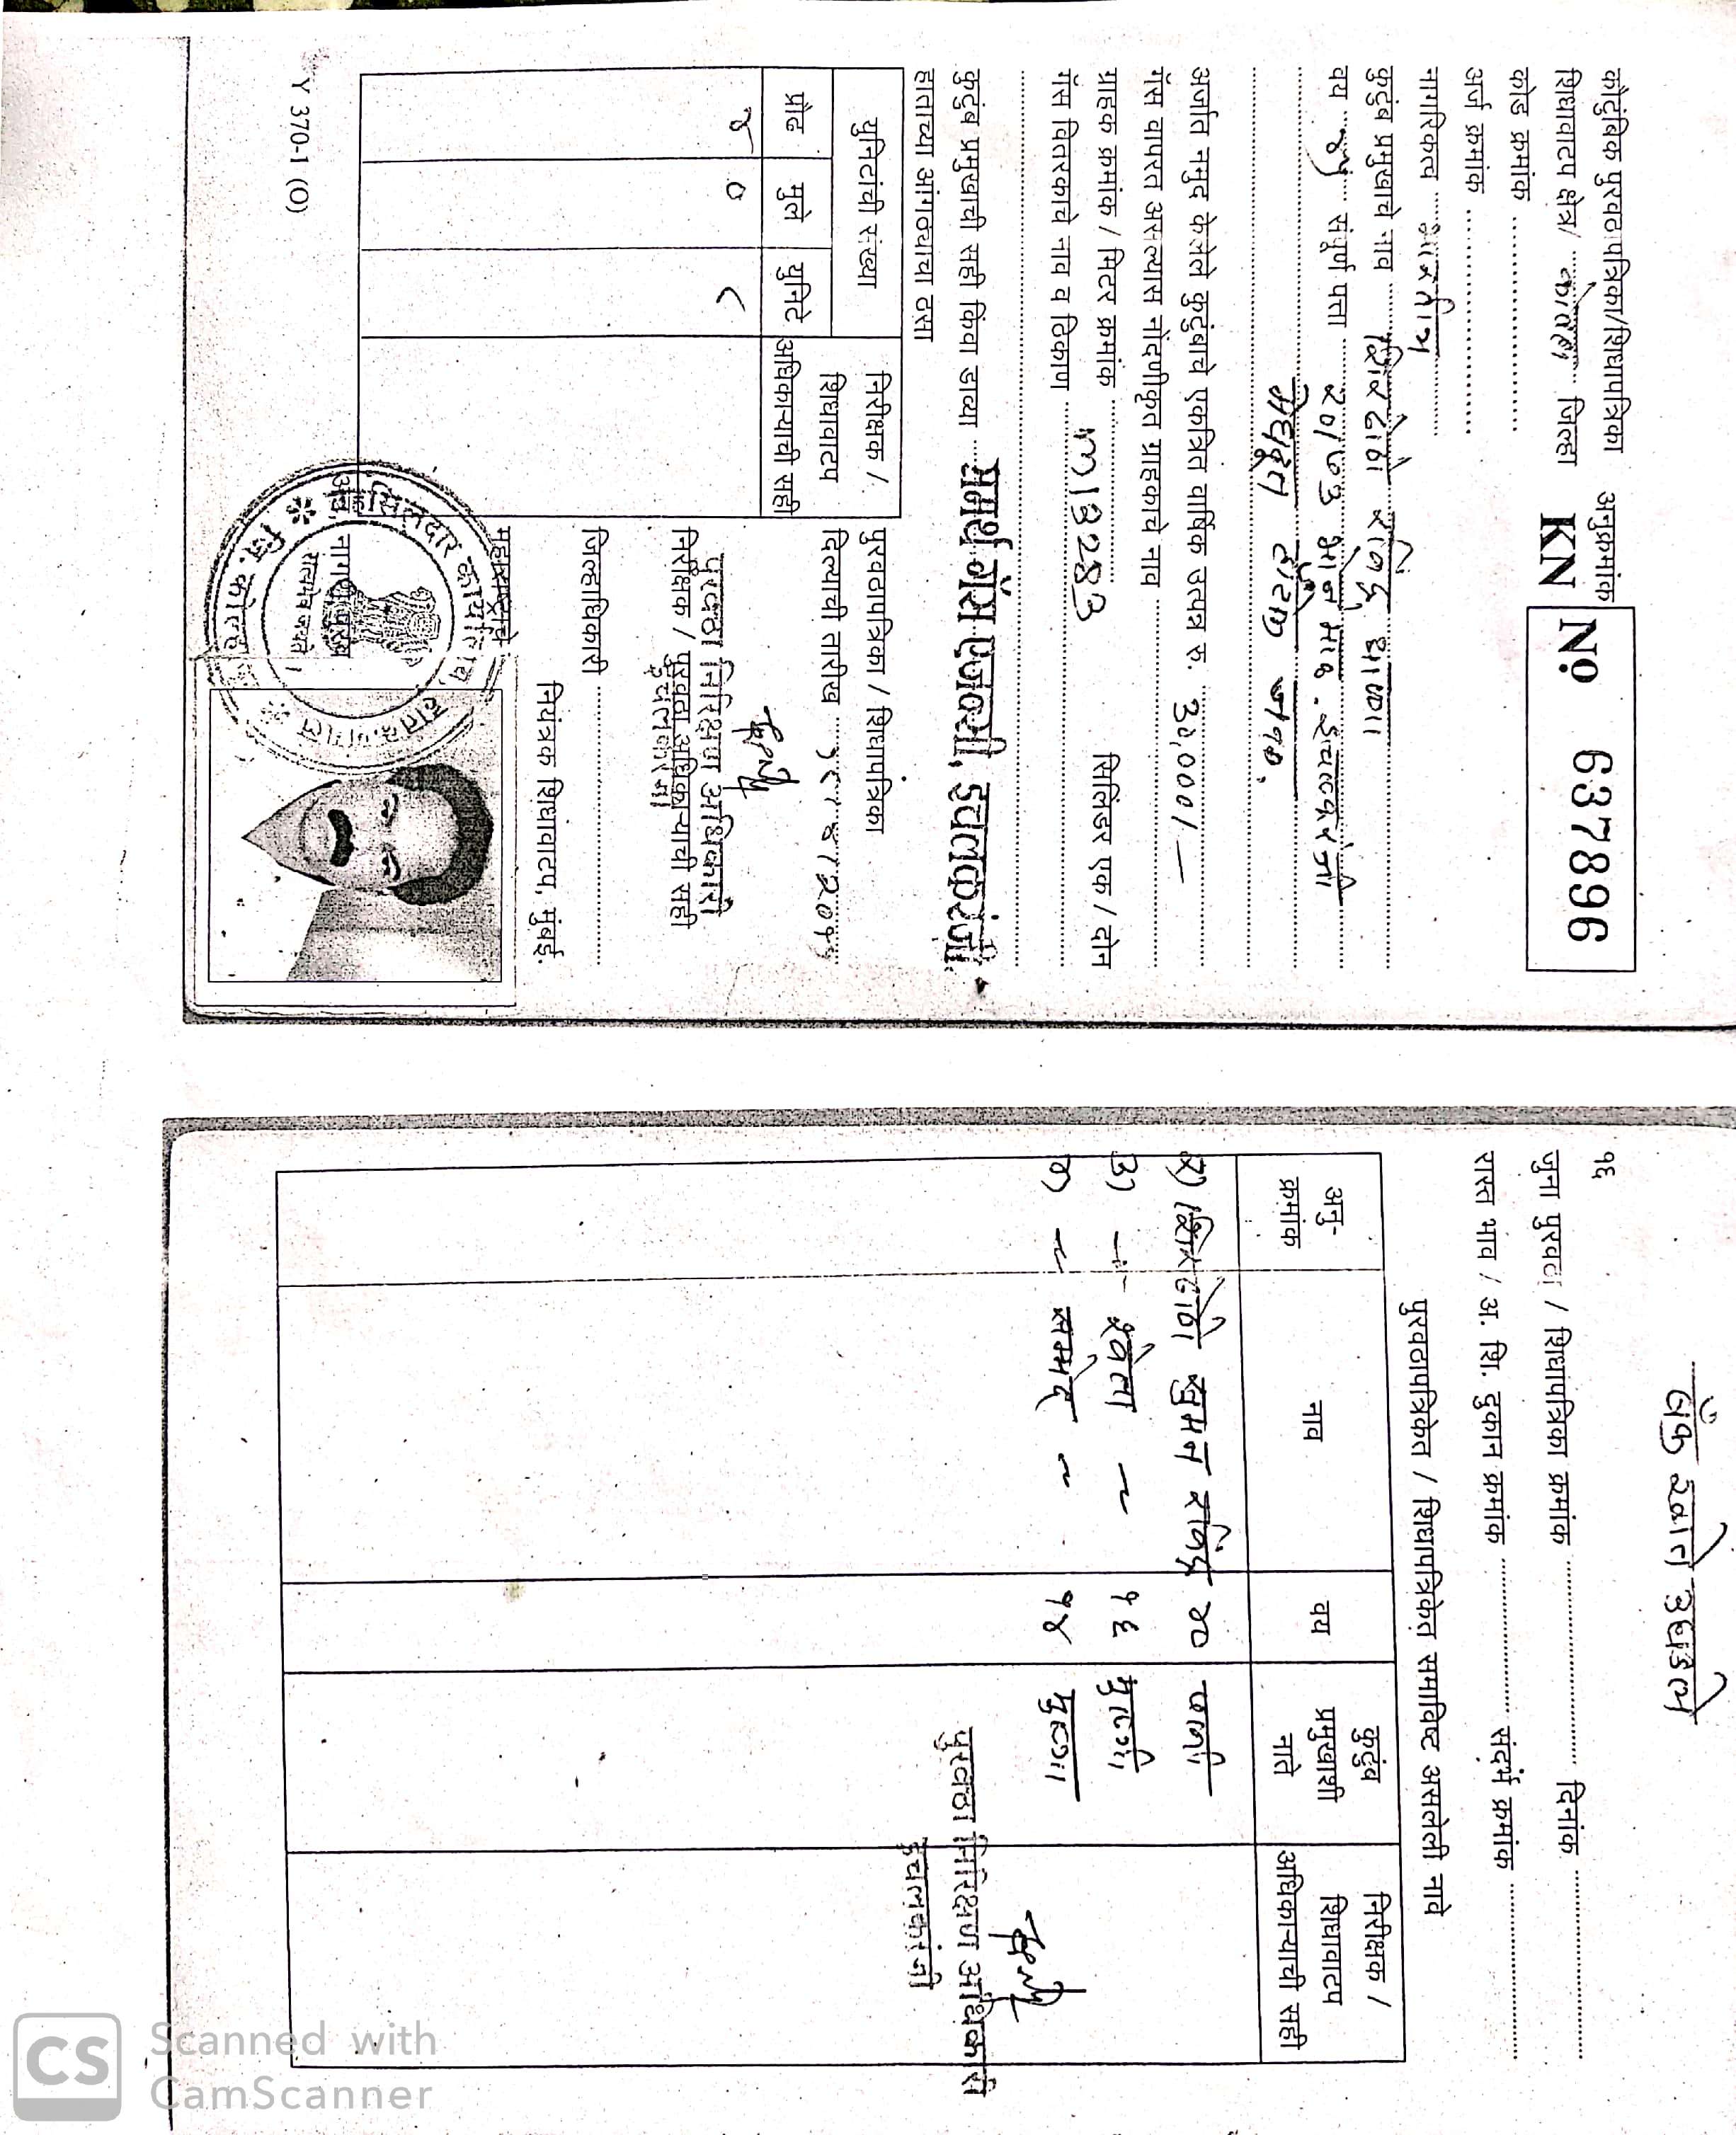 कौटुंबिक पुरवठापत्रिका/शिधापत्रिका
अनुक्रमांक
KN Nọ 637896
शिधावाटप क्षेत्र/ जिल्हा
कोड क्रमांक
अर्ज क्रमांक
नागरिकत्व भारतीय
कुटुंब प्रमुखाचे नाव शिरढोणे
वय ४५ संपूर्ण पत्ता २०/७३ इचलकरंजी
अर्जात नमुद केलेले कुटुंबाचे एकत्रित वार्षिक उत्पन्न रु. 30,000/—
गॅस वापरत असल्यास नोंदणीकृत ग्राहकाचे नाव
ग्राहक क्रमांक / मिटर क्रमांक सिलिंडर एक / दोन
गॅस वितरकाचे नाव व ठिकाण
समर्थ गॅस एजन्सी, इचलकरंजी.
कुटुंब प्रमुखाची सही किंवा डाव्या
हाताच्या आंगठ्याचा ठसा
युनिटांची संख्या
निरीक्षक /
शिधावाटप
अधिकाऱ्याची सही
प्रौढ मुले युनिटे
४ ० ८
पुरवठापत्रिका / शिधापत्रिका
दिल्याची तारीख
पुरवठा निरिक्षण अधिकारी
इचलकरंजी
निरीक्षक / पुरवठा अधिकाऱ्याची सही
जिल्हाधिकारी
नियंत्रक शिधावाटप, मुंबई.
महाराष्ट्राचे
सत्यमेव जयते
Y 370-1 (O)
बँक खाते उघडले
१६
जुना पुरवठा / शिधापत्रिका क्रमांक दिनांक
रास्त भाव / अ. शि. दुकान क्रमांक संदर्भ क्रमांक
पुरवठापत्रिकेत / शिधापत्रिकेत समाविष्ट असलेली नावे
अनु-
क्रमांक
नाव
वय
कुटुंब
प्रमुखाशी
नाते
निरीक्षक /
शिधावाटप
अधिकाऱ्याची सही
२) शिरढोणे सुमन ४० पत्नी
३) —"— श्वेता ~ १६ मुलगी
४) ~ सम्मेद ~ १४ मुलगा
पुरवठा निरिक्षण अधिकारी
इचलकरंजी
CS Scanned with
CamScanner